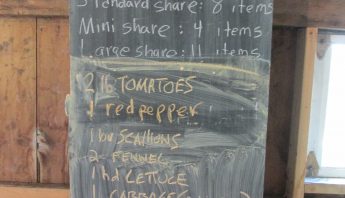 Standard share: 8 items
Mini share: 4 items
Large share: 11 items
2 lb TOMATOES
1 red pepper
1 bu SCALLIONS
2 FENNEL
1 hd LETTUCE
1 CABBAGE